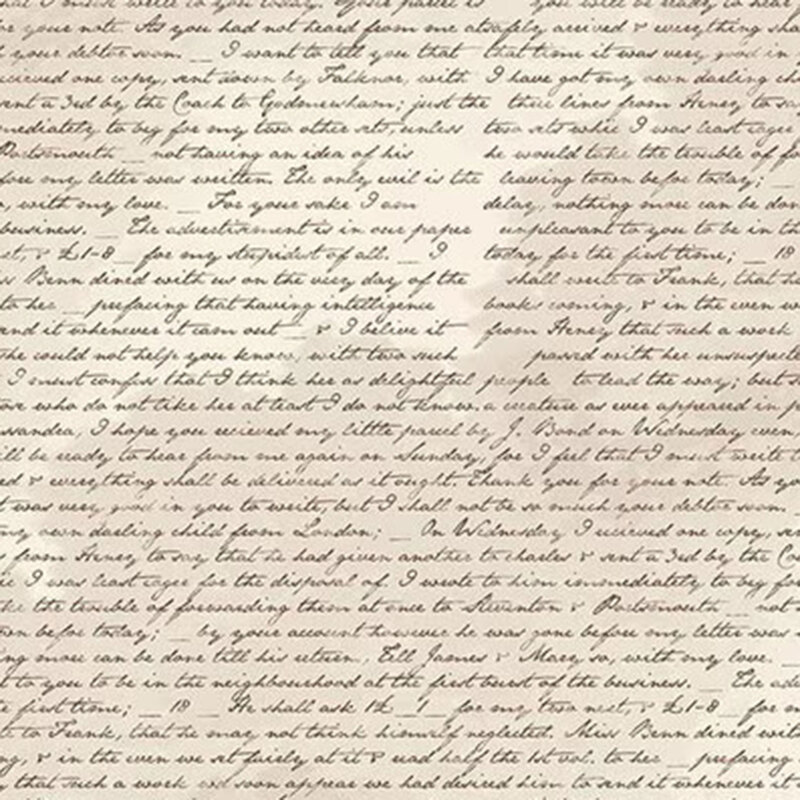 I must write to you today. Your parcel is you will be ready to hear
for your note. As you had not heard from me at safely arrived & everything sha
h your debtor soon. __ I want to tell you that that time it was very good in y
ucieved one copy, sent down by Falknor, with I have got my own darling ch
sent a 3rd by the Coach to Godmersham; just the three lines from Henry to sa
mediately to beg for my two other sets, unless two sets whic I was least eager
Portsmouth __ not having an idea of his he would take the trouble of fo
fore my letter was written. The only evil is the leaving town befor today; __
o, with my love. __ For your sake I am delay, nothing more can be don
business. __ The advertisment is in our paper unpleasant to you to be in th
xt, & £1-8 __ for my stupidist of all. __ I today for the first time; __ 18
ss Benn dined with us on the very day of the shall write to Frank, that h
to her __ prefacing that having intelligence books coming, & in the even w
and it whenever it cam out __ & I belive it from Henry that such a work
she could not help you know, with two such passed with her unsuspecte
I must confess that I think her as delightful people to lead the way; but s
ose who do not like her at least I do not know. a creature as ever appeared in p
ssandra, I hope you recieved my little parcel by J. Bond on Wednesday even,
ill be ready to hear from me again on Sunday, for I feel that I must write t
ed & everything shall be delivered as it ought. Thank you for your note. As yo
t was very good in you to write, but I shall not be so much your debtor soon. __
my own darling child from London; __ On Wednesday I ucieved one copy, sen
s from Henry to say that he had given another to charles & sent a 3rd by the Co
ic I was least eager for the disposal of. I wrote to him immediately to beg for
ke the trouble of forwarding them at once to Steventon & Portsmouth __ not
wn befor today; __ by your account however he was gone before my letter was
ng more can be done till his return. Tell James & Mary so, with my love. __
t to you to be in the neighbourhood at the first burst of the business. __ The adv
e first time; __ 18 __ He shall ask 1£ __ 1 __ for my two next, & £1-8 __ for m
te to Frank, that he may not think himself neglected. Miss Benn dined with
ng, & in the even we set fairly at it & read half the 1st vol. to her __ prefacing
that such a work wd soon appear we had desired him to send it whenever it